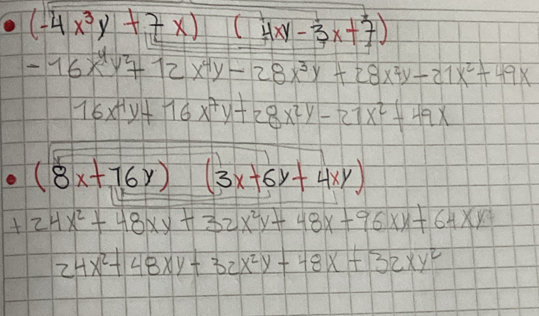 • (-4x³y + 7x) (4xy - 3x + 7)
-16x⁴y² + 12x⁴y - 28x³y + 28x²y - 21x² + 49x
16x⁴y + 16x²y + 28x²y - 21x² + 49x
• (8x + 16y) (3x + 6y + 4xy)
+ 24x² + 48xy + 32x²y + 48x + 96xy + 64xy
24x² + 48xy + 32x²y + 48x + 32xy²